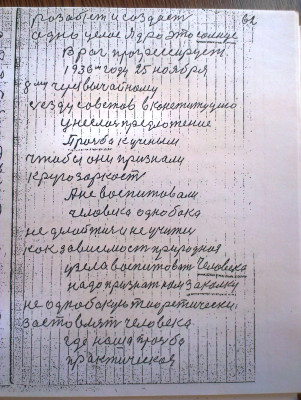 розабъет и создает 62
одно целое Ядро это солнце
Враг прогрессирует.
1936м году 25 ноября
8му чрезвычайному
съезду советов в конституцию
унеслос предложение
Прозба к ученым
чтоби они признали
кругозаркост
А не воспитовали
человека однобака
не дelали и не учитми
как зависемост природная
узела воспитоват Человека
надо признат нам Закалку
не однобокую теоретически
заставлят человека
где наша прозба
практическая